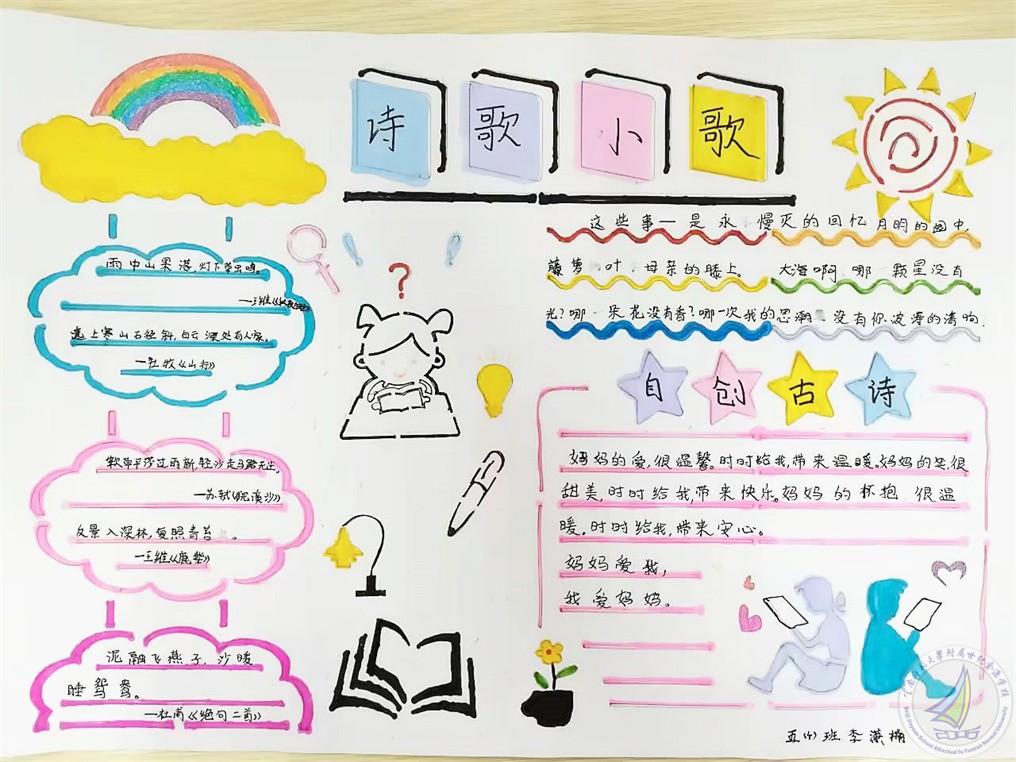 诗歌小歌
雨中山果落,灯下草虫鸣。
遠上寒山石径斜,白云深处有人家。
—杜牧《山行》
软草平莎过雨新,轻沙走马路无尘。
—苏轼《浣溪沙》
反景入深林,复照青苔。
—王维《鹿柴》
泥融飞燕子,沙暖
睡鸳鸯。
—杜甫《绝句二首》
这些事—是永 慢灭的回忆月明的园中,
藤萝 叶,母亲的膝上。 大海啊,哪 颗星没有
光?哪 朵花没有香?哪一次我的思潮 没有你波涛的清响.
自创古诗
妈妈的爱,很温馨。时时给我,带来温暖。妈妈的 很
甜美,时时给我,带来快乐。妈妈的怀抱 很温
暖。时时给我,带来安心。
妈妈爱我,
我爱妈妈。
班李